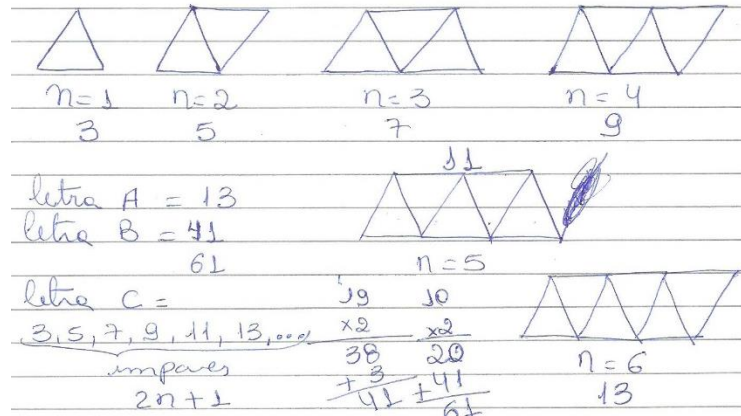 n=1 n=2 n=3 n=4
3 5 7 9
11
letra A = 13
letra B = 41
61
n=5
letra C =
3, 5, 7, 9, 11, 13, ...
impares
2n+1
19
x2
38
+3
41
10
x2
20
+41
61
n=6
13